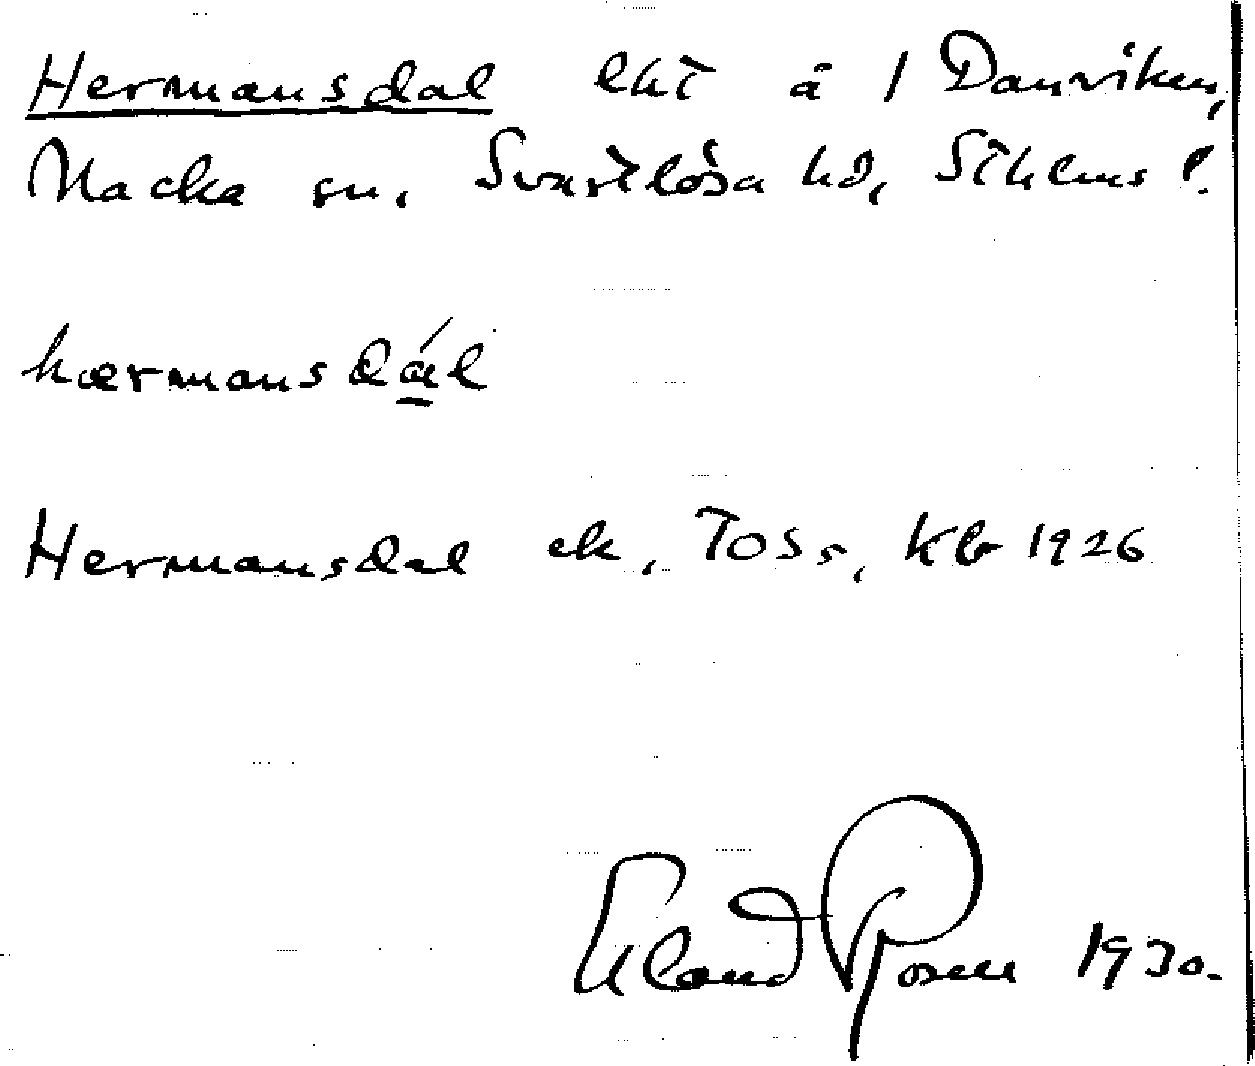 Hermansdal lht å 1 Danviken,
Nacka sn, Svartlösa hd, Sthlms l.
hærmansdál
Hermansdal ek, TOSs, Kb 1926
Eland Rosell 1930.